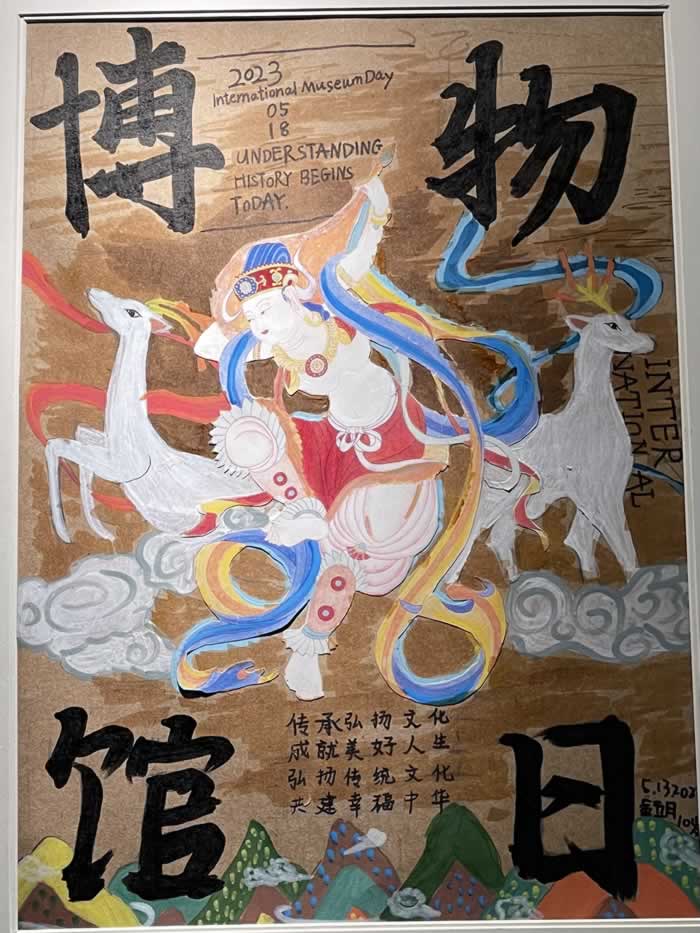 博 物
2023
International Museum Day
05
18
UNDERSTANDING
HISTORY BEGINS
TODAY.
INTER
NATIONAL
传承弘扬文化
成就美好人生
弘扬传统文化
共建幸福中华
馆 日
5.13 202
104